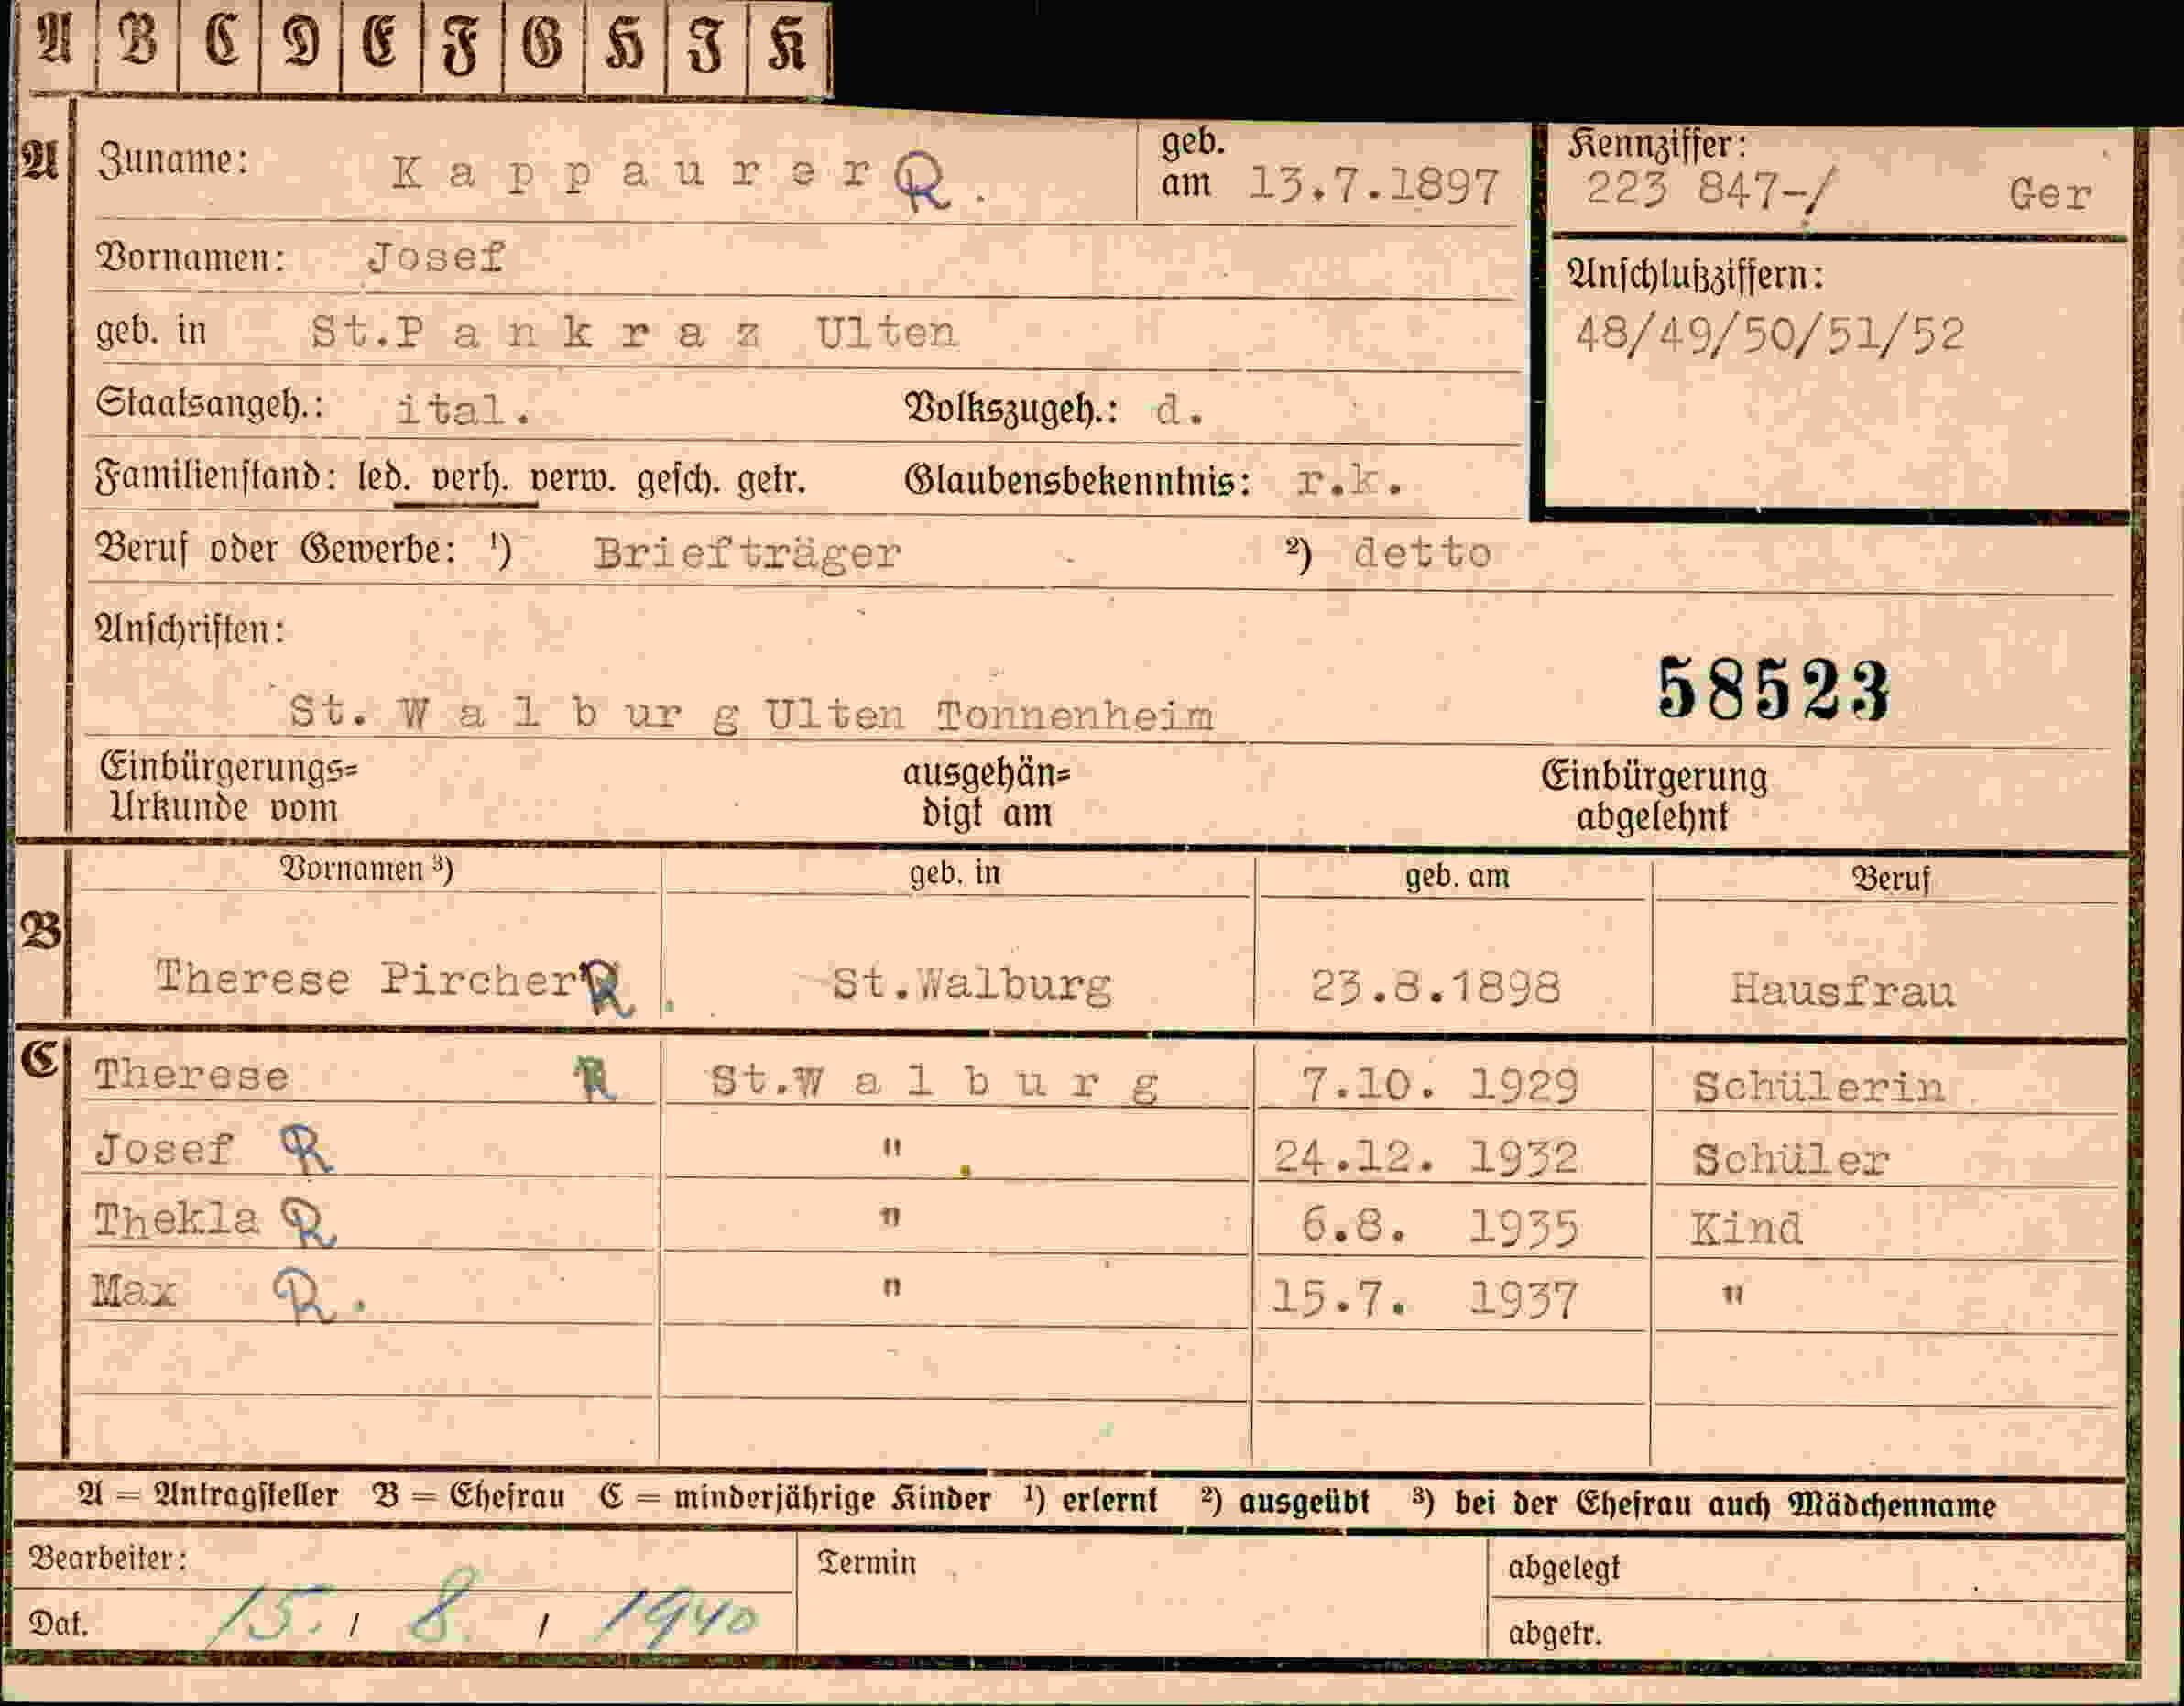 A B C D E F G H I K
A Zuname: Kappaurer R. geb. am 13.7.1897 Kennziffer: 223 847-/ Ger
Vornamen: Josef Anschlußziffern:
48/49/50/51/52
geb. in St.Pankraz Ulten
Staatsangeh.: ital. Volkszugeh.: d.
Familienstand: led. verh. verw. gesch. getr. Glaubensbekenntnis: r.k.
Beruf oder Gewerbe: ¹) Briefträger ²) detto
Anschriften:
58523
St. Walburg Ulten Tonnenheim
Einbürgerungs= ausgehän= Einbürgerung
Urkunde vom digt am abgelehnt
Vornamen ³) geb. in geb. am Beruf
B Therese Pircher R. St.Walburg 23.8.1898 Hausfrau
C Therese R St.Walburg 7.10. 1929 Schülerin
Josef R " 24.12. 1932 Schüler
Thekla R " 6.8. 1935 Kind
Max R. " 15.7. 1937 "
A = Antragsteller B = Ehefrau C = minderjährige Kinder ¹) erlernt ²) ausgeübt ³) bei der Ehefrau auch Mädchenname
Bearbeiter: Termin abgelegt
Dat. 15. / 8. / 1940 abgetr.